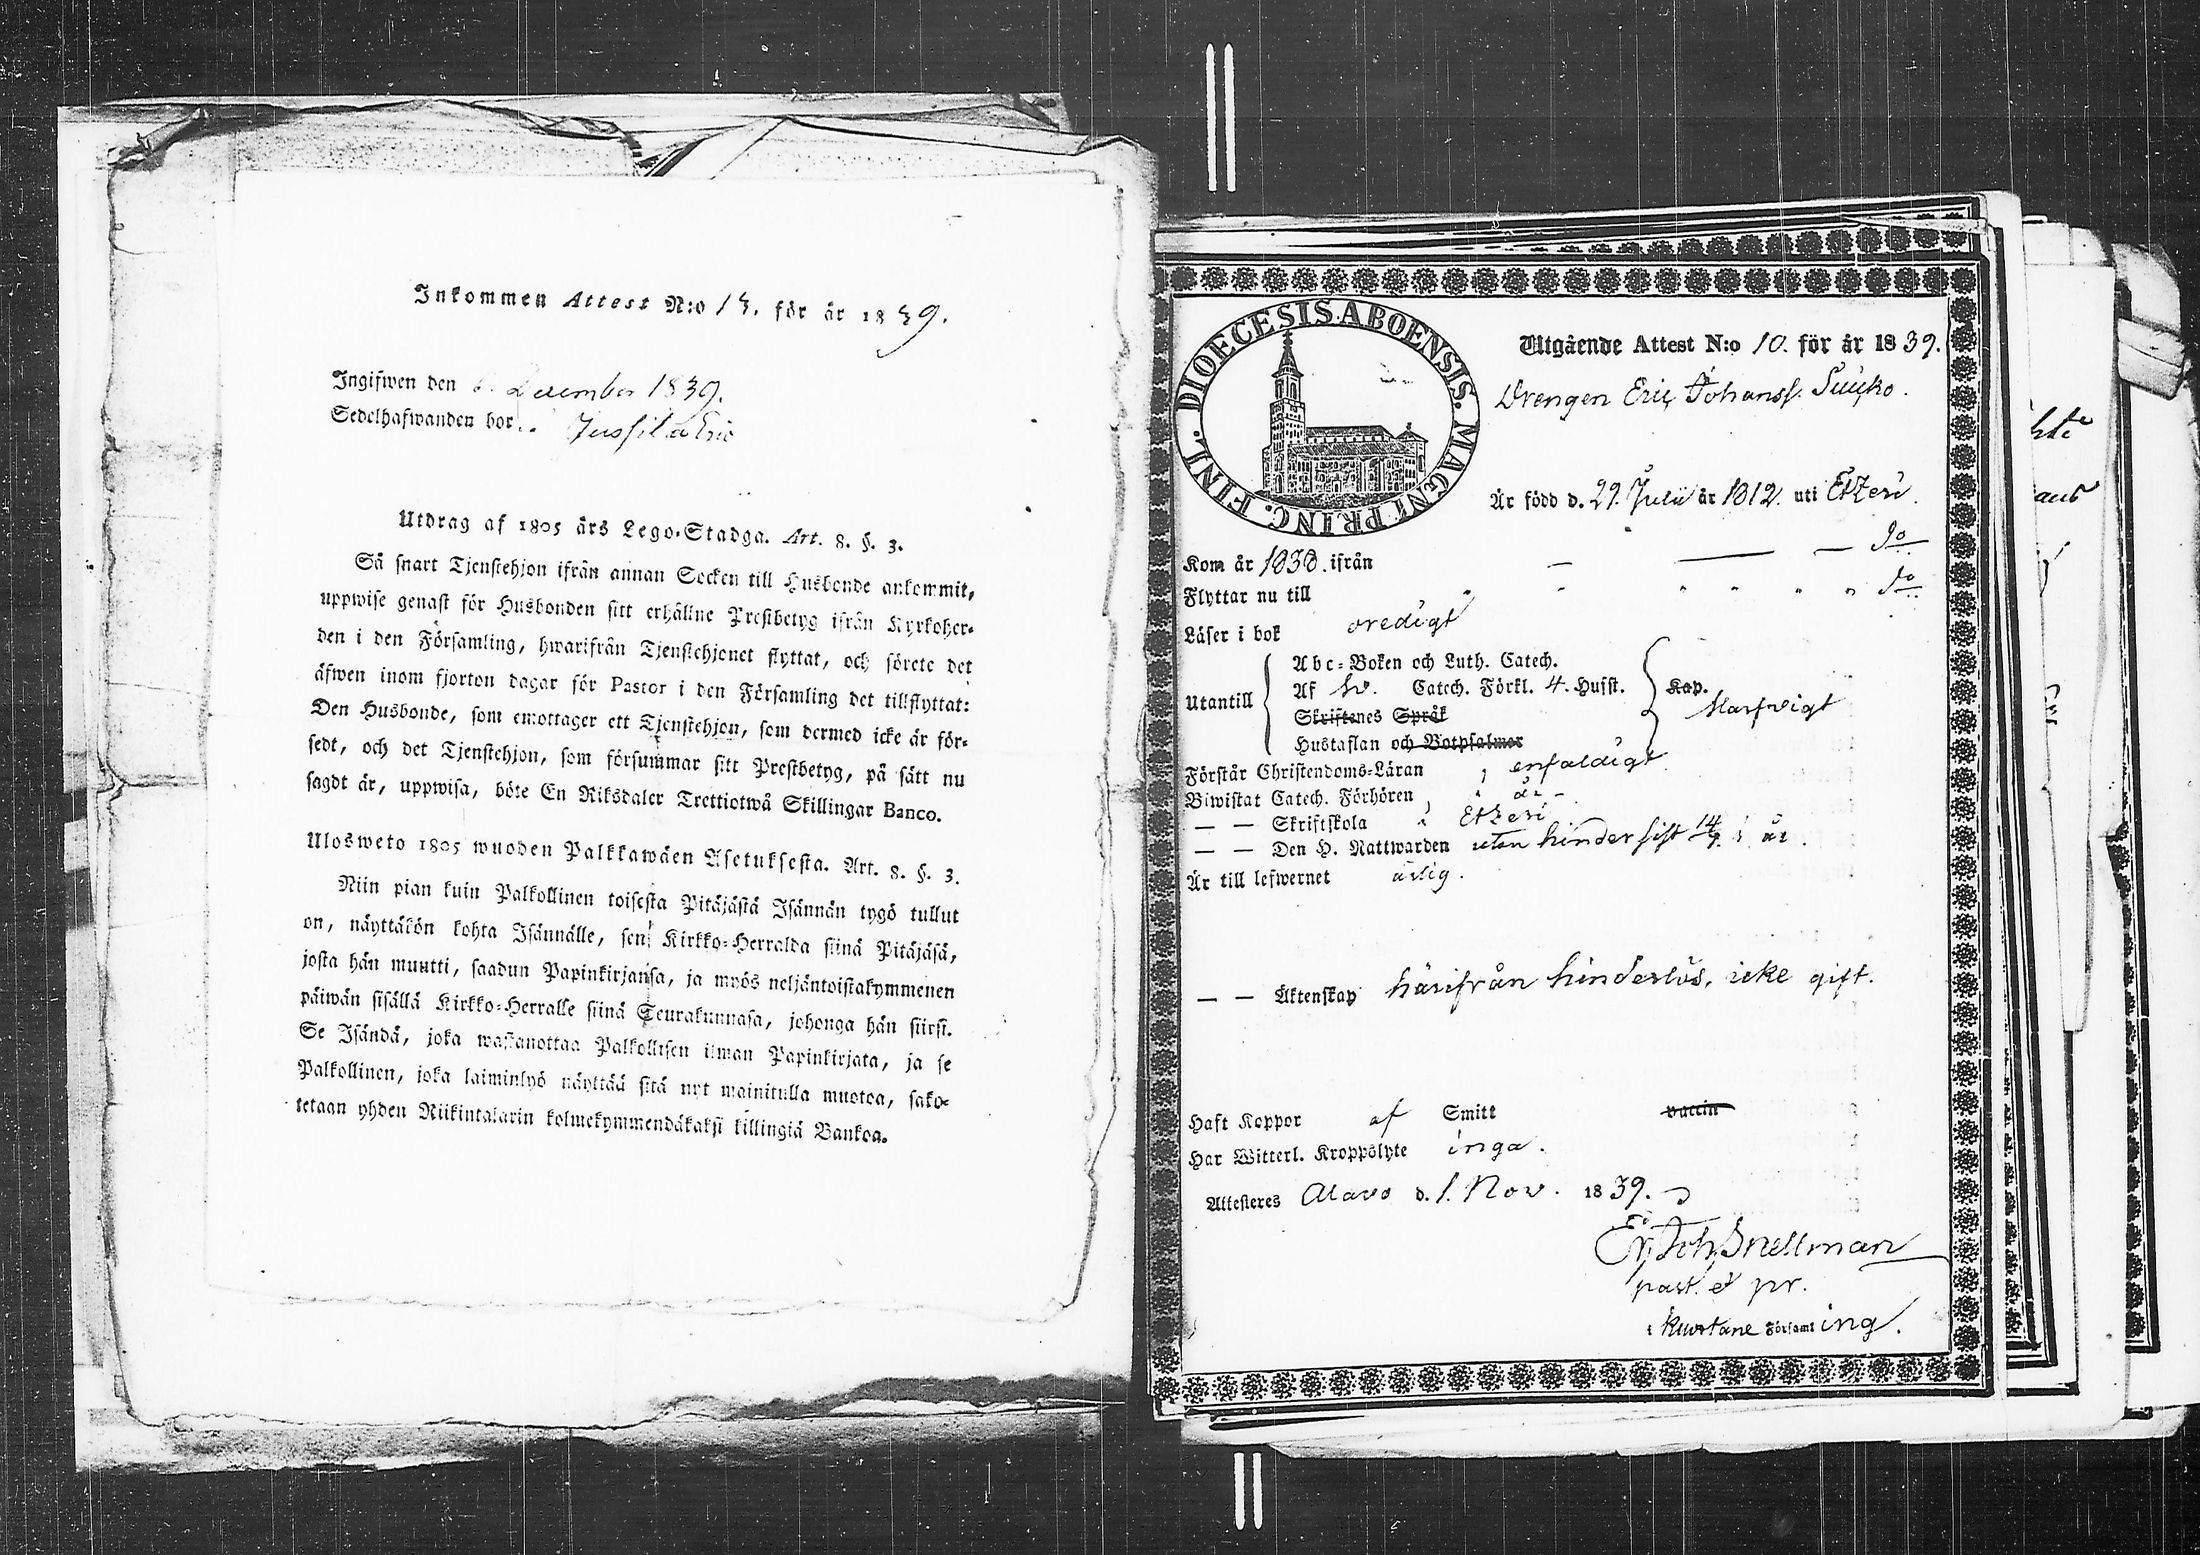 Inkommen Attest N:o 13. för år 1839.
Ingifwen den 6. December 1839.
Sedelhafwanden bor Jussila Eric
Utdrag af 1805 års Lego-Stadga. Art. 8. §. 3.
Så snart Tjenstehjon ifrån annan Socken till Husbonde ankommit,
uppwise genast för Husbonden sitt erhållne Prestbetyg ifrån Kyrkoher-
den i den Församling, hwarifrån Tjenstehjonet flyttat, och förete det
äfwen inom fjorton dagar för Pastor i den Församling det tillflyttat:
Den Husbonde, som emottager ett Tjenstehjon, som dermed icke är för-
sedt, och det Tjenstehjon, som försummar sitt Prestbetyg, på sätt nu
sagdt är, uppwisa, böte En Riksdaler Trettiotwå Skillingar Banco.
Ulosweto 1805 wuoden Palkkawäen Asetuksesta. Art. 8. §. 3.
Niin pian kuin Palkollinen toisesta Pitäjästä Isännän tygö tullut
on, näyttäkön kohta Isännälle, sen Kirkko-Herralda siinä Pitäjäsä,
josta hän muutti, saadun Papinkirjansa, ja myös neljäntoistakymmenen
päiwän sisällä Kirkko-Herralle siinä Seurakunnasa, johonga hän siirsi.
Se Isändä, joka wastanottaa Palkollisen ilman Papinkirjata, ja se
Palkollinen, joka laiminlyö näyttää sitä nyt mainitulla muotoa, sako-
tetaan yhden Riikintalarin kolmekymmendäkaksi killingiä Bankoa.
DIOECESIS ABOENSIS. MAGNI PRINC. FINL.
Utgående Attest N:o 10. för år 1839.
Drengen Eric Johanss. Suuko.
Är född d. 29. Julii år 1812. uti Etzeri.
Kom år 1838. ifrån — — — do
Flyttar nu till " " " " " " do
Läser i bok oredigt
Abc-Boken och Luth. Catech.
Utantill Af Sv. Catech. Förkl. 4. Husst. Kap.
Skriftenes Språk
Slarfvigt
Hustaflan och Botpsalmer
Förstår Christendoms-Läran enfaldigt
Biwistat Catech. Förhören i
— — Skriftskola i Etzeri
— — Den H. Nattwarden utan hinder sist 14/7 i år.
Är till lefwernet ärlig.
— — Äktenskap härifrån hinderlös, icke gift.
Haft Koppor af Smitt vaccin
Har Witterl. Kroppslyte inga.
Attesteres Alavo d. 1. Nov. 1839.
Er. Joh. Snellman
past. et pr.
i Kuortane Församling.